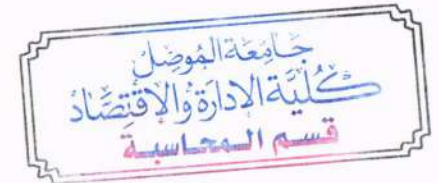 جَامِعَة المُوصِل
كُليَّة الادارَة وَالاقتِصَاد
قسم المحاسبة